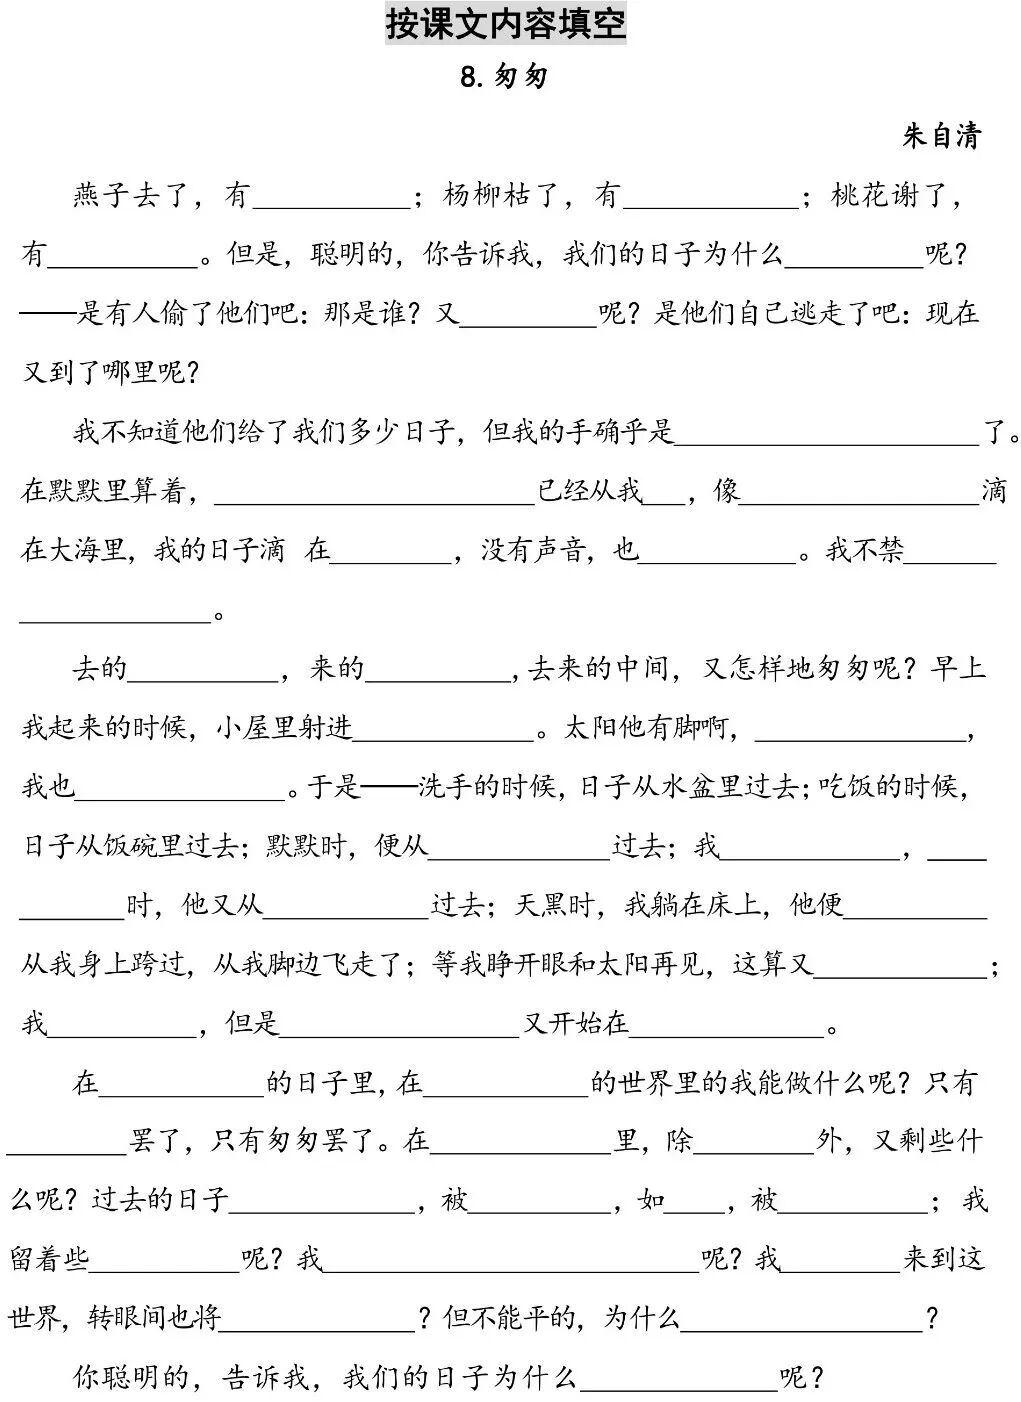 按课文内容填空
8. 匆匆
朱自清
燕子去了，有___________；杨柳枯了，有____________；桃花谢了，
有__________。但是，聪明的，你告诉我，我们的日子为什么__________呢？
——是有人偷了他们吧：那是谁？又_________呢？是他们自己逃走了吧：现在
又到了哪里呢？
我不知道他们给了我们多少日子，但我的手确乎是_____________________了。
在默默里算着，______________________已经从我___，像________________滴
在大海里，我的日子滴 在________，没有声音，也___________。我不禁______
_____________。
去的__________，来的__________,去来的中间，又怎样地匆匆呢？早上
我起来的时候，小屋里射进____________。太阳他有脚啊，______________，
我也______________。于是——洗手的时候，日子从水盆里过去；吃饭的时候，
日子从饭碗里过去；默默时，便从____________过去；我____________，____
_______时，他又从___________过去；天黑时，我躺在床上，他便__________
从我身上跨过，从我脚边飞走了；等我睁开眼和太阳再见，这算又____________；
我__________，但是________________又开始在_____________。
在___________的日子里，在___________的世界里的我能做什么呢？只有
________罢了，只有匆匆罢了。在____________里，除________外，又剩些什
么呢？过去的日子____________，被__________，如____，被__________；我
留着些__________呢？我_________________________呢？我________来到这
世界，转眼间也将_____________？但不能平的，为什么________________？
你聪明的，告诉我，我们的日子为什么_____________呢？